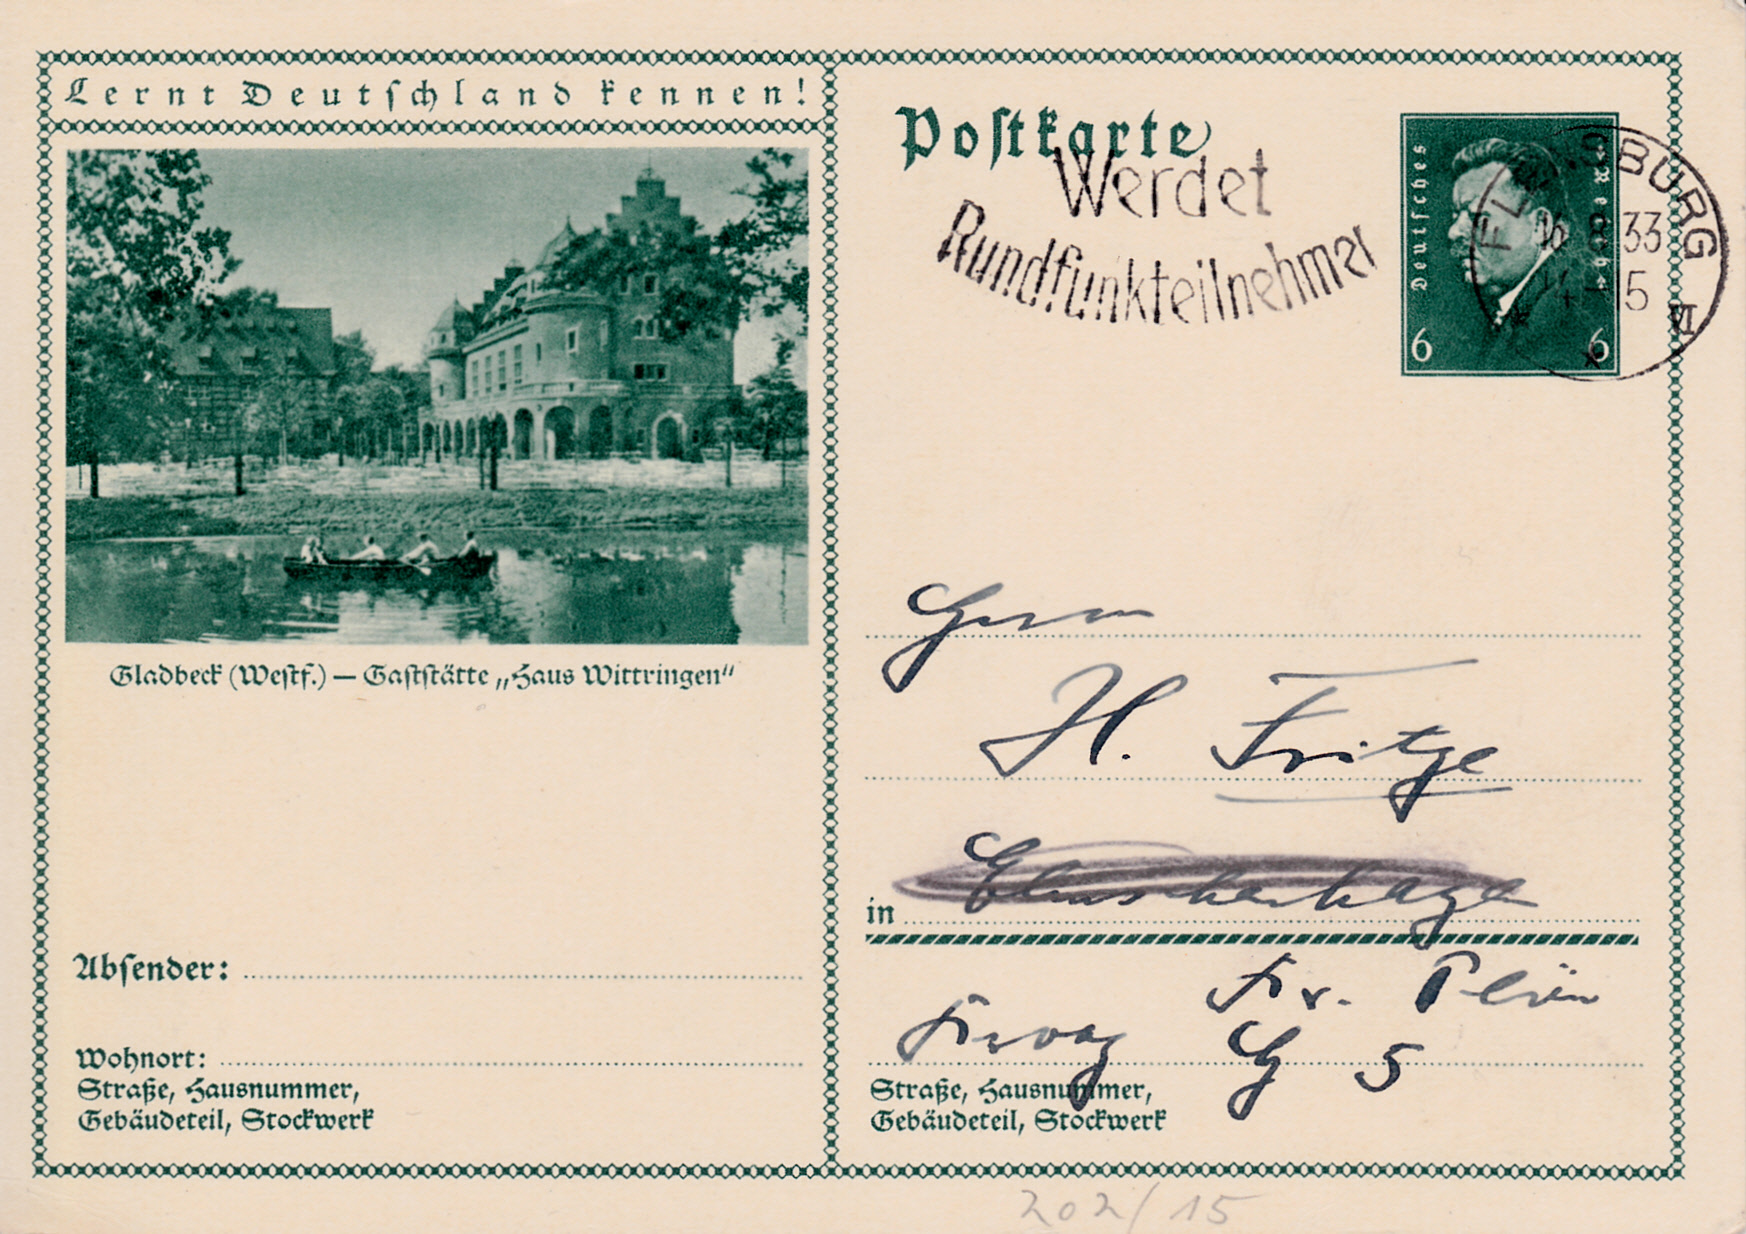 Lernt Deutschland kennen!
Gladbeck (Westf.) — Gaststätte „Haus Wittringen“
Absender:
Wohnort:
Straße, Hausnummer,
Gebäudeteil, Stockwerk
Postkarte
Werdet
Rundfunkteilnehmer
Deutsches Reich
6 6
33
15
VI
Herrn
H. Fritze
in
Kr. Plön
G 5
Straße, Hausnummer,
Gebäudeteil, Stockwerk
202/15